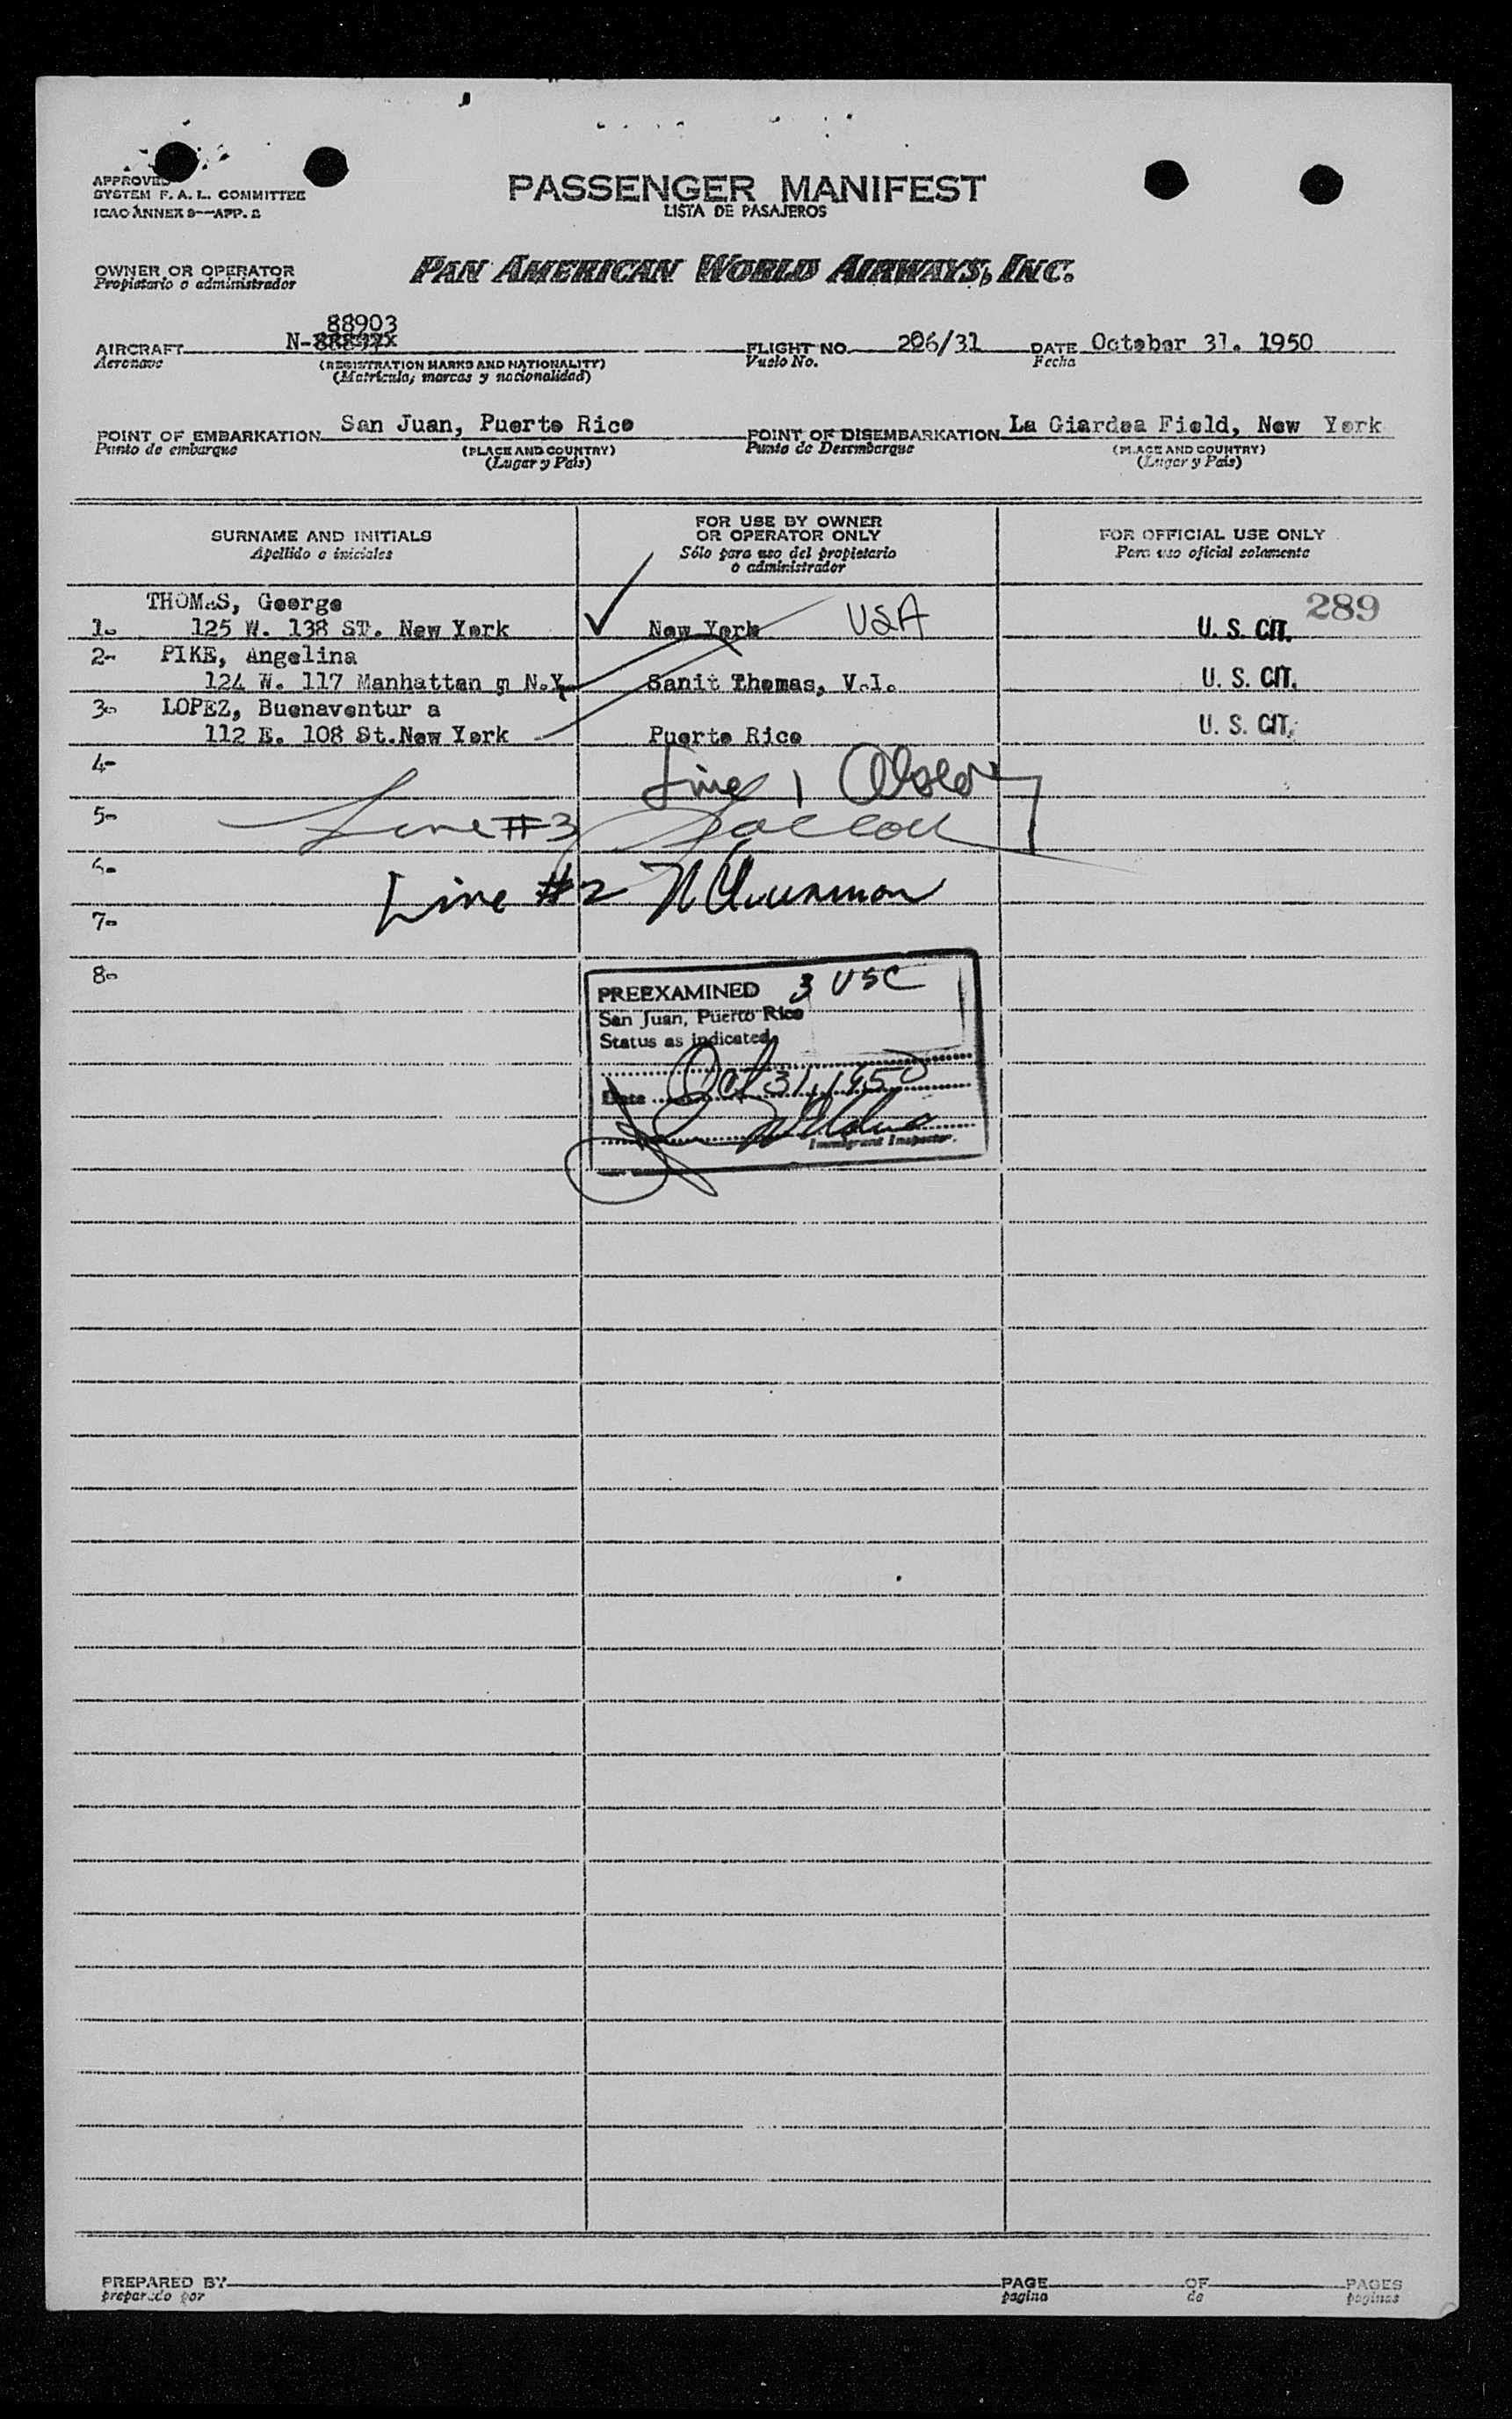 APPROVED
SYSTEM F. A. L. COMMITTEE
ICAO ANNEX 9—APP. 2
PASSENGER MANIFEST
LISTA DE PASAJEROS
OWNER OR OPERATOR
Propietario o administrador
PAN AMERICAN WORLD AIRWAYS, INC.
88903
AIRCRAFT N- FLIGHT NO. 206/31 DATE October 31. 1950
Aeronave (REGISTRATION MARKS AND NATIONALITY) Vuelo No. Fecha
(Matrícula, marcas y nacionalidad)
POINT OF EMBARKATION San Juan, Puerto Rico POINT OF DISEMBARKATION La Giardea Field, New York
Punto de embarque (PLACE AND COUNTRY) Punto de Desembarque (PLACE AND COUNTRY)
(Lugar y País) (Lugar y País)
SURNAME AND INITIALS
Apellido e iniciales
FOR USE BY OWNER
OR OPERATOR ONLY
Sólo para uso del propietario
o administrador
FOR OFFICIAL USE ONLY
Para uso oficial solamente
THOMAS, George 289
1- 125 W. 138 ST. New York New York USA U. S. CIT.
2- PIKE, Angelina
124 W. 117 Manhattan N.Y. Sanit Thomas, V.I. U. S. CIT.
3- LOPEZ, Buenaventur a
112 E. 108 St.New York Puerto Rico U. S. CIT.
4- Line 1
5- Line #3
6-
Line #2
7-
8-
PREEXAMINED 3 USC
San Juan, Puerto Rico
Status as indicated
Date Oct 31, 1950
Immigrant Inspector.
PREPARED BY PAGE OF PAGES
preparado por pagina de paginas